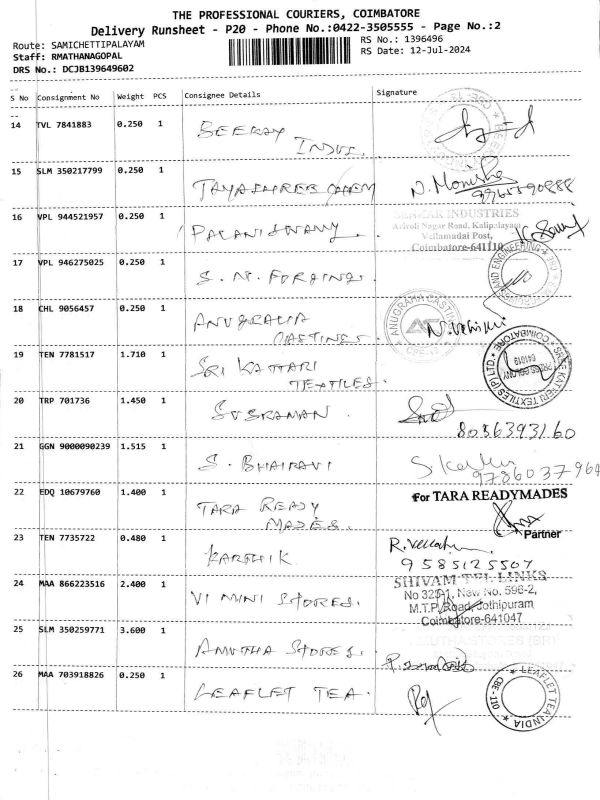 THE PROFESSIONAL COURIERS, COIMBATORE
Delivery Runsheet - P20 - Phone No.:0422-3505555 - Page No.:2
Route: SAMICHETTIPALAYAM
RS No.: 1396496
Staff: RMATHANAGOPAL
RS Date: 12-Jul-2024
DRS No.: DCJB139649602
S No Consignment No Weight PCS Consignee Details Signature
14 TVL 7841883 0.250 1 SEERAY
INDUS.
15 SLM 350217799 0.250 1 JAYASHREE CHEM N. Monisha
9965590888
16 VPL 944521957 0.250 1 PALANISWAMY.
INDUSTRIES
Arivoli Nagar Road, Kalipalayam
Vellamadai Post,
Coimbatore-641110
17 VPL 946275025 0.250 1 S. N. FORGINGS
AND ENGINEERING
18 CHL 9056457 0.250 1 ANUGRAHA
CASTINGS
ANUGRAHA CASTING
19 TEN 7781517 1.710 1 SRI KATTARI
TEXTILES.
COIMBATORE 641019
20 TRP 701736 1.450 1 SUBRAMAN.
8056393160
21 GGN 9000090239 1.515 1 S. BHAIRAVI
9786037964
22 EDQ 10679760 1.400 1 TARA READY
MADES.
For TARA READYMADES
Partner
23 TEN 7735722 0.480 1 KARTHIK
9585125507
24 MAA 866223516 2.400 1 VI MINI STORES.
SHIVAM TEL LINKS
No 325-1, New No. 596-2,
M.T.P. Road, Jothipuram
Coimbatore-641047
25 SLM 350259771 3.600 1 AMUTHA STORES.
26 MAA 703918826 0.250 1 LEAFLET TEA.
LEAFLET TEA INDIA
CBE-110